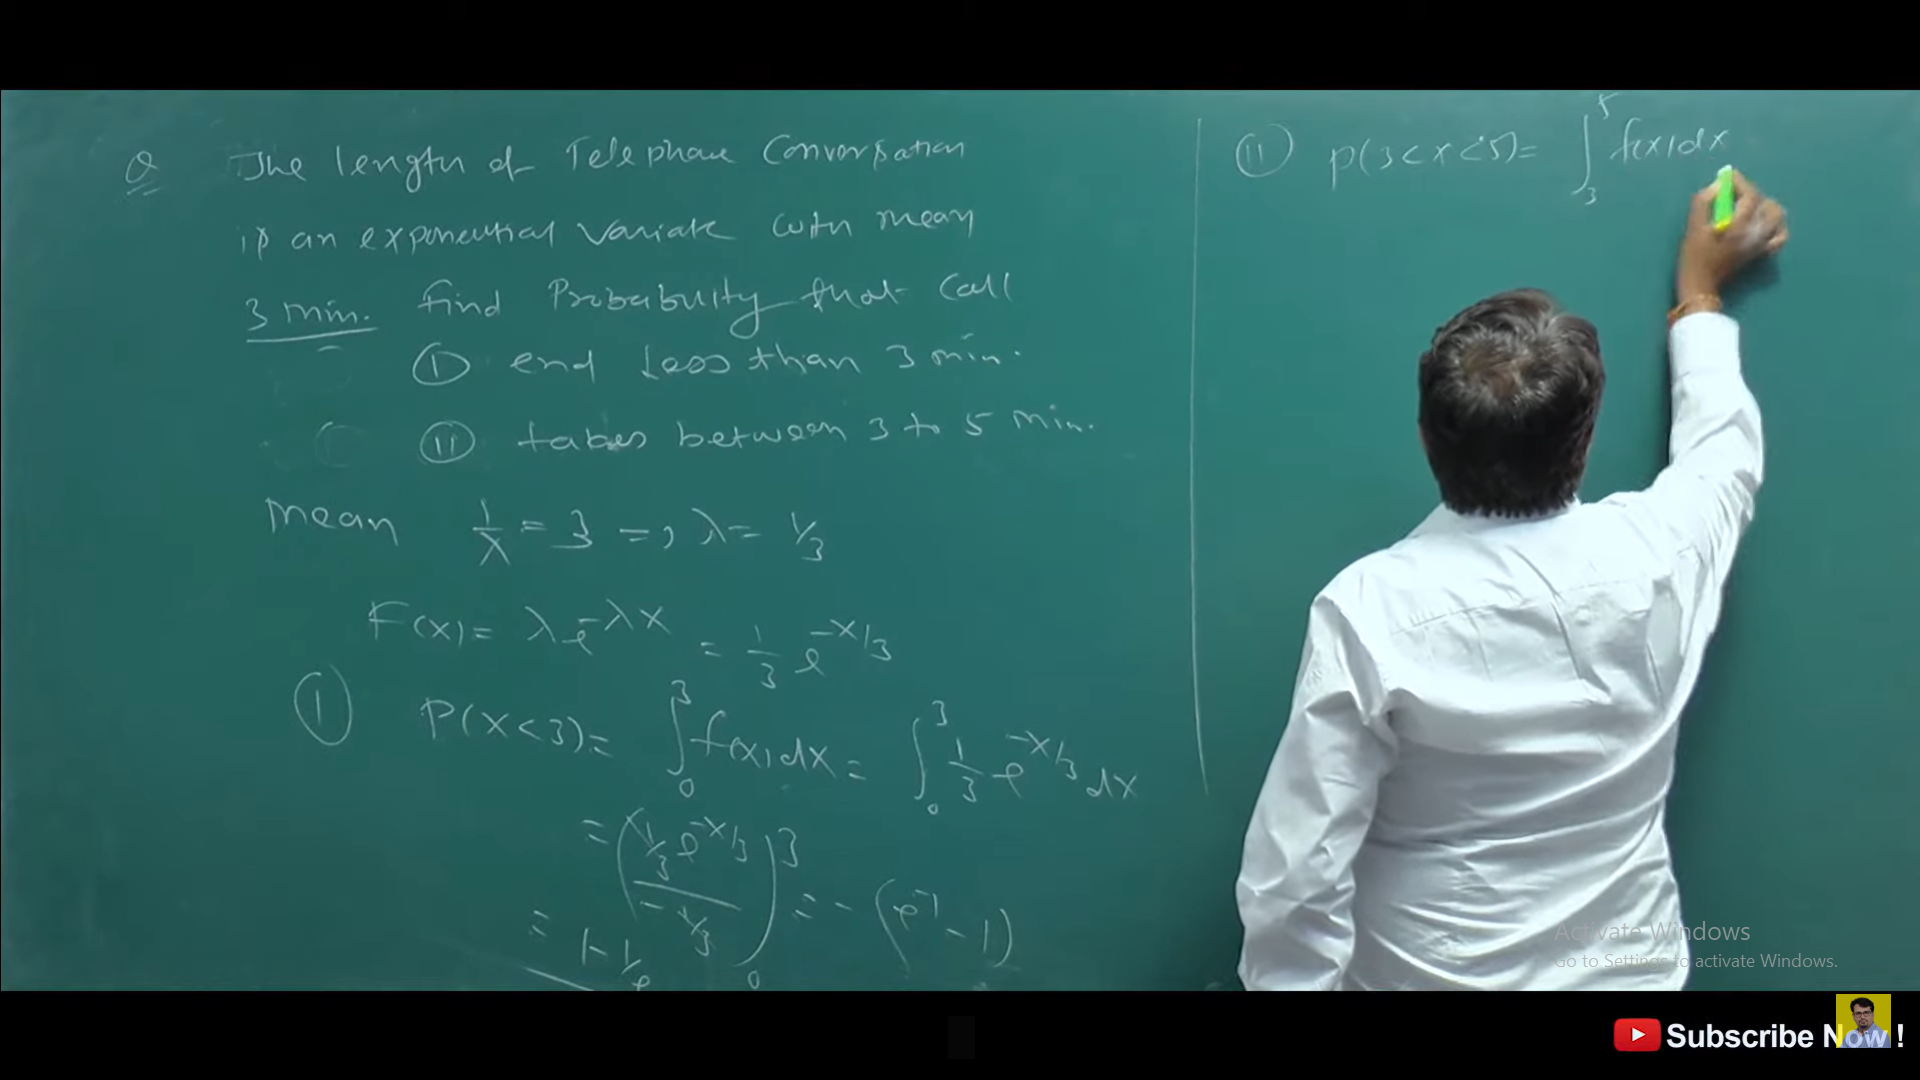 Q The length of Telephone Conversation
is an exponential variate with mean
3 min. find Probability that call
(I) end Less than 3 min.
(II) takes between 3 to 5 min.
mean 1/λ = 3 => λ = 1/3
F(x) = λe^-λx = 1/3 e^-x/3
(I) P(x<3) = ∫_0^3 f(x)dx = ∫_0^3 1/3 e^-x/3 dx
= (1/3 e^-x/3 / -1/3)_0^3 = -(e^-1 - 1)
= 1 - 1/e
(II) P(3<x<5) = ∫_3^5 f(x)dx
Activate Windows
Go to Settings to activate Windows.
Subscribe Now !